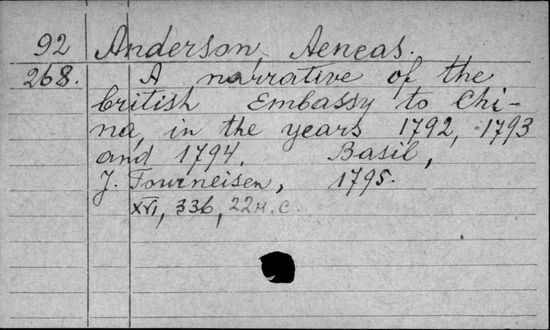 92 Anderson, Aeneas.
268. A narrative of the
british Embassy to Chi-
na, in the years 1792, 1793
and 1794. Basil,
J. Tourneisen, 1795.
XVI, 336, 22 н. с.